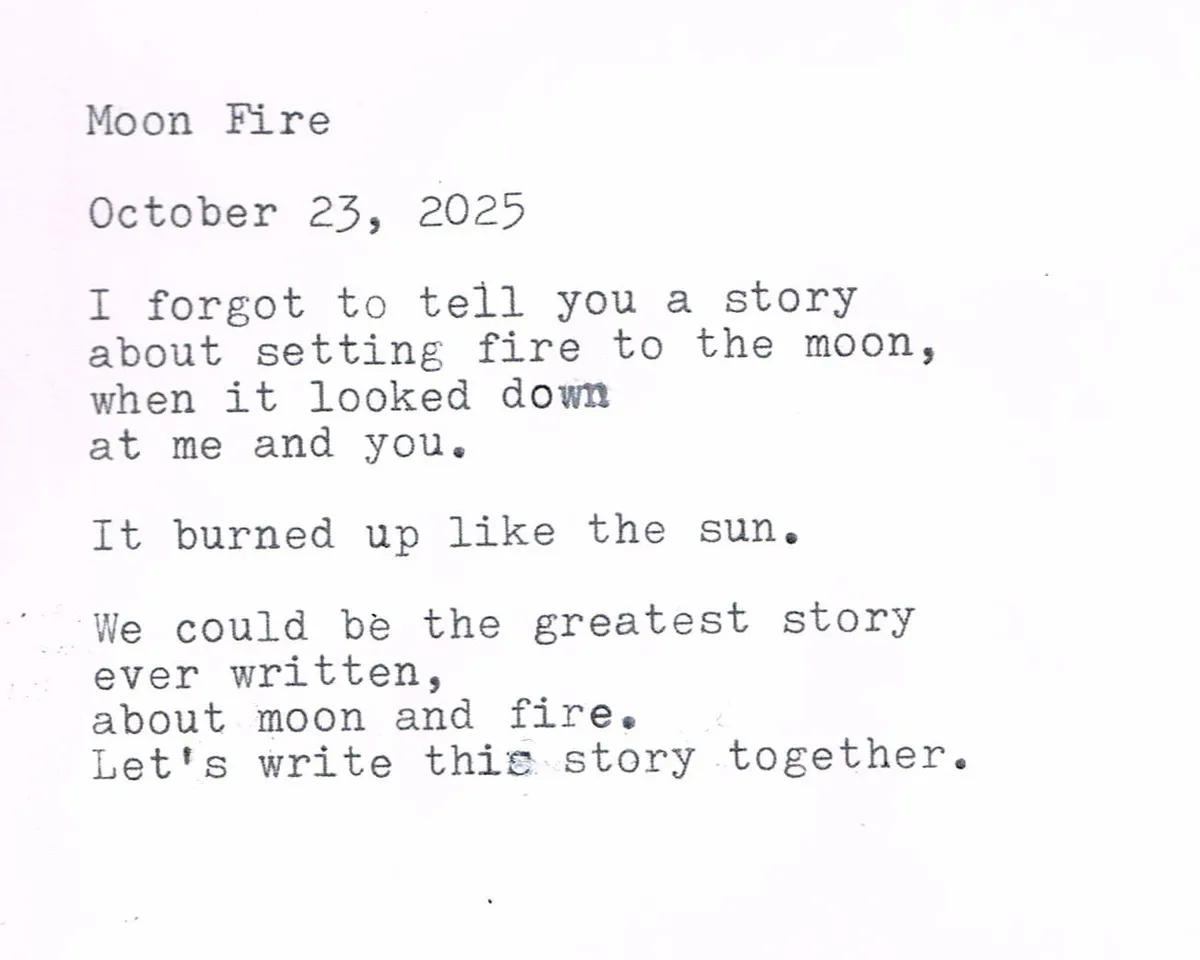 Moon Fire
October 23, 2025
I forgot to tell you a story
about setting fire to the moon,
when it looked down
at me and you.
It burned up like the sun.
We could be the greatest story
ever written,
about moon and fire.
Let's write this story together.